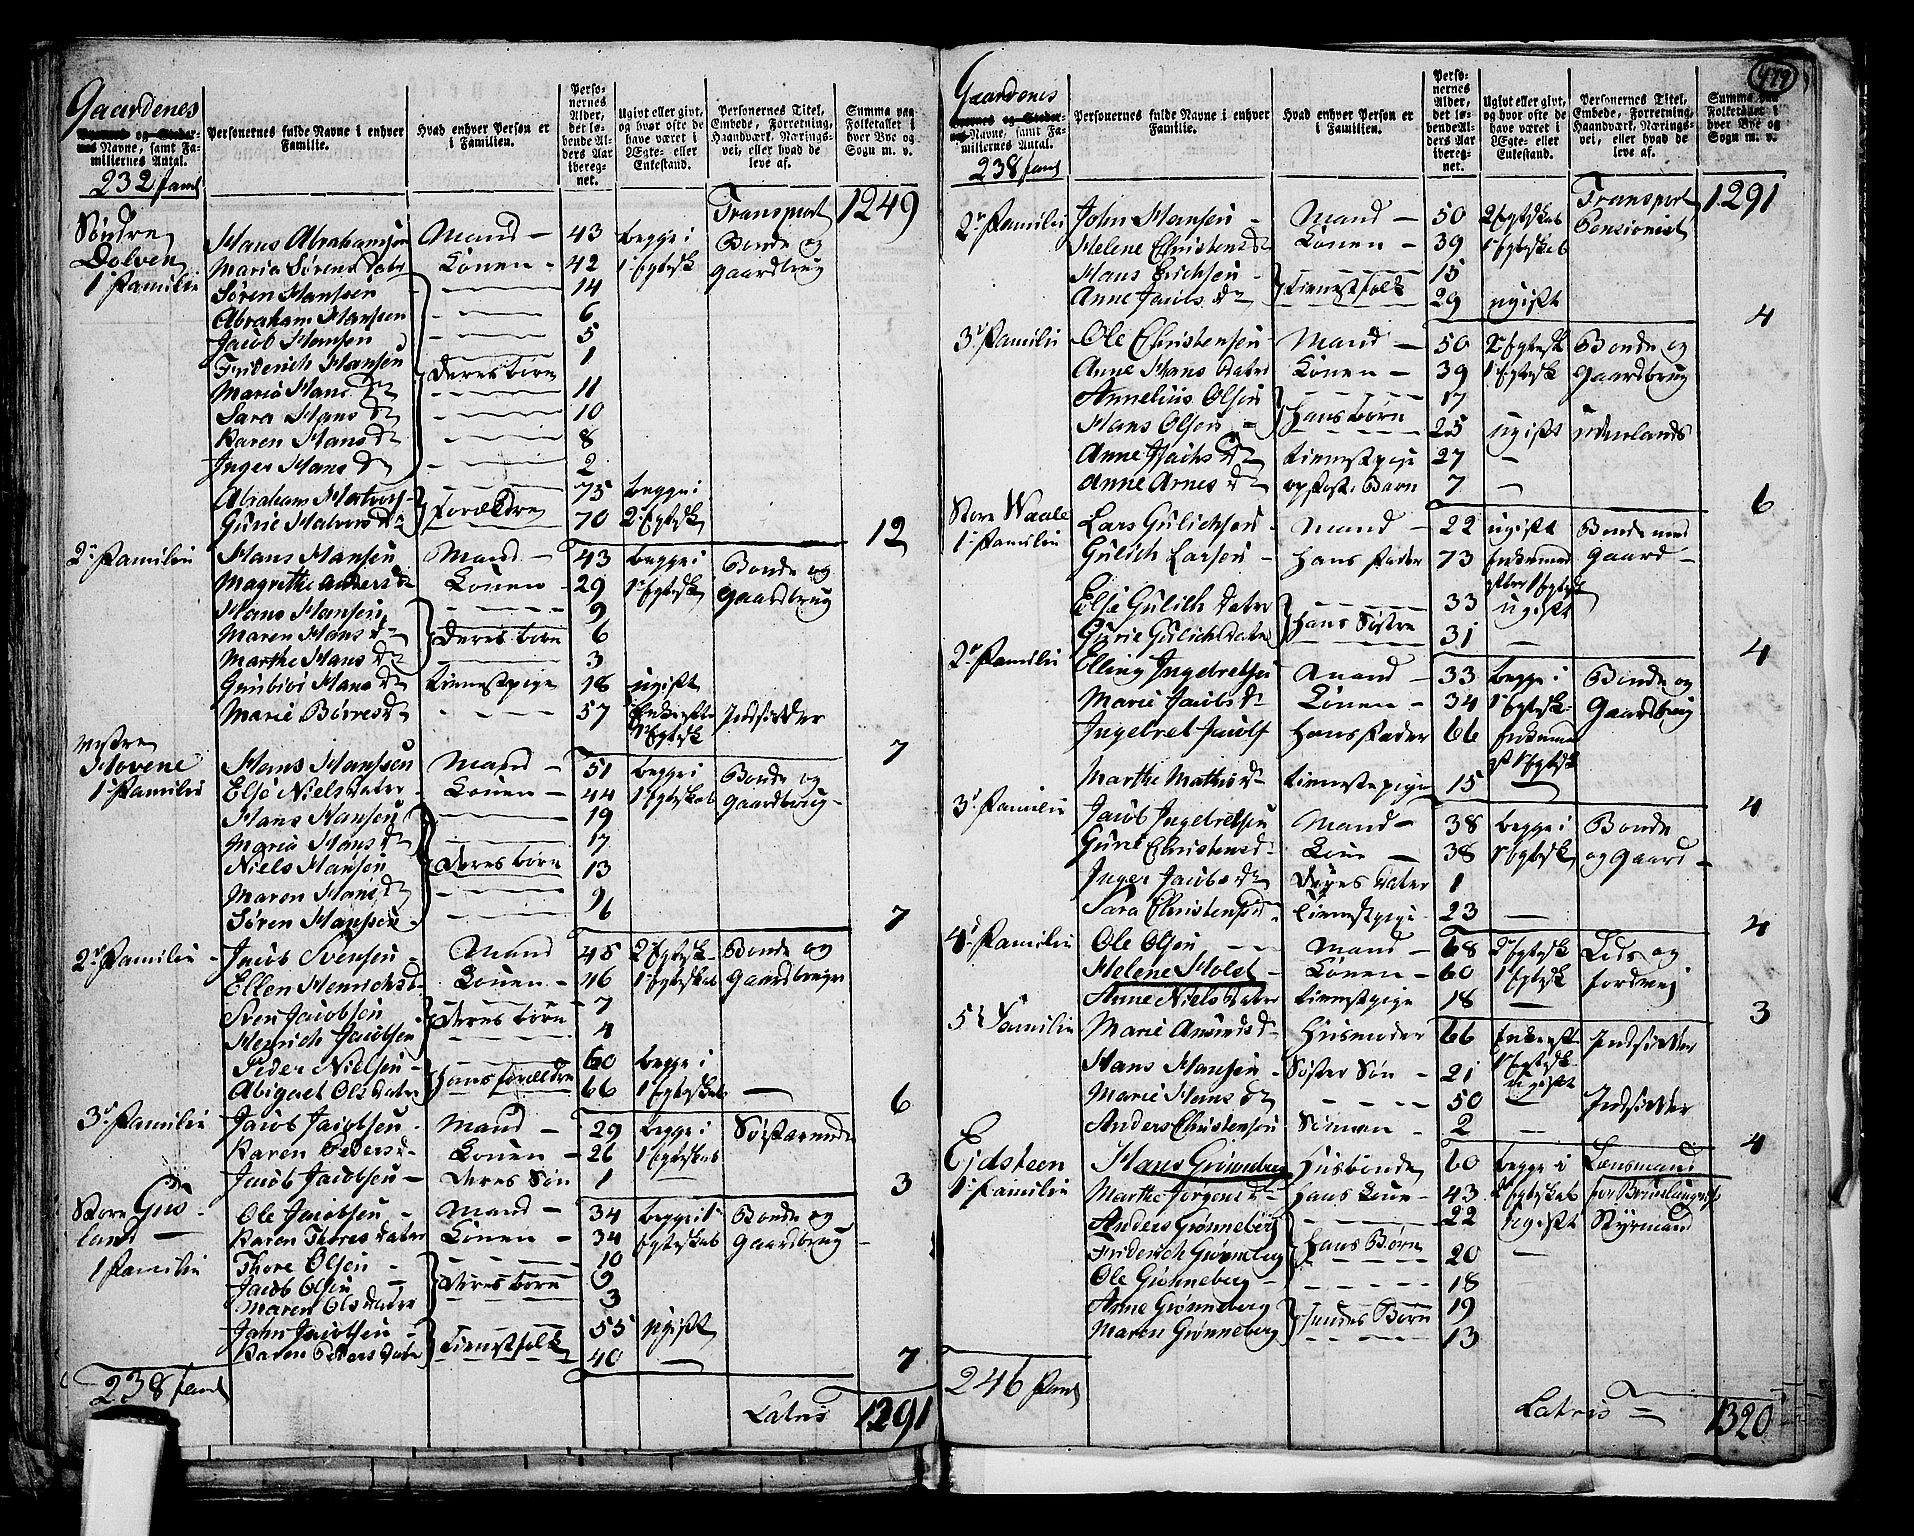 Gaardenes
Byernes og Stedernes Navne, samt Familiernes Antal.
Personernes fulde Navne i enhver Familie.
Hvad enhver Person er i Familien.
Personernes Alder, det løbende Alders Aar iberegnet.
Ugivt eller givt, og hvor ofte de have været i Ægte- eller Enkestand.
Personernes Titel, Embede, Forretning, Haandværk, Næringsvei, eller hvad de leve af.
Summa paa Folketallet i hver Bye og Sogn m. v.
232 faml
Transport 1249
Søndre Dolven
1 Familie Hans Abrahamsen Mand 43 begge i Bonde og
Maria Sørens dater Konen 42 1 Egtesk gaardbrug
Søren Hansen 14
Abraham Hansen 6
Jacob Hansen 5
Friderich Hansen deres børn 1
Maria Hans dr 11
Sara Hans dr 10
Karen Hans dr 8
Inger Hans dr 2
Abraham Halvors 75 begge i
Gurie Halvors dr forældre 70 2 Egtesk 12
2 Familie Hans Hansen Mand 43 begge i Bonde og
Magrethe Anders dr Konen 29 1 Egtesk gaardbrug
Hans Hansen 9
Maren Hans dr deres børn 6
Marthe Hans dr 3
Gunbior Hans dr tienestpige 18 ugift
Marie Børres dr 57 Enke efter 1 Egtesk Indsidder 7
Vestre Hovene
1 Familie Hans Hansen Mand 51 begge i Bonde og
Else Niels dater Konen 44 1 Egteskab gaardbrug
Hans Hansen 19
Maria Hans dr 17
Niels Hansen deres børn 13
Maren Hans dr 9
Søren Hansen 6 7
2 Familie Jacob Svensen Mand 45 2 Egtesk Bonde og
Ellen Henrichs d Konen 46 1 Egteskab Gaardbruger
Sven Jacobsen 7
Henrich Jacobsen deres børn 4
Peder Nielsen 60 begge i
Abigael Ols dater hans forældre 66 1 Egteskab 6
3 Familie Jacob Jacobsen Mand 29 begge i Søefarende
Karen Peders d Konen 26 1 Egteskab
Jacob Jacobsen deres Søn 1 3
Store Gusland
1 Familie Ole Jacobsen Mand 34 begge i 1 Bonde og
Karen Thores dater Konen 34 Egteskab Gaardbrug
Thore Olsen 10
Jacob Olsen deres børn 9
Maren Ols dater 3
John Jacobsen 55 ugift
Karen Peders dater Tienestfolk 40 7
238 faml
Latus 1291
Gaardenes
479
Byernes og Stedernes Navne, samt Familiernes Antal.
Personernes fulde Navne i enhver Familie.
Hvad enhver Person er i Familien.
Personernes Alder, det løbende Alders Aar iberegnet.
Ugivt eller givt, og hvor ofte de have været i Ægte- eller Enkestand.
Personernes Titel, Embede, Forretning, Haandværk, Næringsvei, eller hvad de leve af.
Summa paa Folketallet i hver Bye og Sogn m. v.
238 faml
Transport 1291
2 Familie John Hansen Mand 50 2 Egteskab Pensionist
Helene Christens dr Konen 39 1 Egteskab
Hans Erichsen 15
Anne Jacobs dr tienestfolk 29 ugift 4
3 Familie Ole Christensen Mand 50 2 Egtesk Bonde og
Anne Hans dater Konen 39 1 Egtesk gaardbrug
Annelius Olsen 17
Hans Olsen hans børn 25 ugift udenlands
Anne dr tienestpige 27
Anne Arnes dr opfost. Barn 7 6
Store Waale
1 Familie Lars Gulichsen Mand 22 ugift Bonde med
Gulich Larsen hans Fader 73 Enkemand efter 1 Egtesk Gaard
Else Gulich dater 33 ugift
Gurie Gulichs dater hans Søstre 31 4
2 Familie Elling Ingebretsen Mand 33 begge i Bonde og
Marie Jacobs dr Konen 34 1 Egtesk Gaardbrug
Ingebret Jacobs hans Fader 66 Enkemand 1 Egtesk
Marthe Mathis dr tienestepige 15 4
3 Familie Jacob Ingebretsen Mand 38 begge i Bonde
Gurie Christens d Kone 38 1 Egtesk og Gaard
Inger Jacobs dr deres dater 1
Sara Christens d tienestpige 23 4
4 Familie Ole Olsen Mand 68 2 Egtesk Lods og
Helene Holst Konen 60 1 Egtesk
Anne Niels dater tienestpige 18 3
5 Familie Marie Amunds dr Husmoder 66 Enke 1 Egtesk Indsidder
Hans Hansen Søster Søn 21 ugift
Marie Hans dr 50 Indsidder
Anders Christensen Sønnen 2 4
Ejdsteen
1 Familie Hans Grønneberg Husbonde 60 begge i Lensmand
Marthe Jørgens dr hans Kone 43 2 Egteskab for Brunlaugnes
Anders Grønneberg 22 Ugift Styrmand
Friderich Grønneberg hans Børn 20
Ole Grønneberg 18
Anne Grønneberg 19
Maren Grønneberg hendes Børn 13
246 faml
Latus 1320